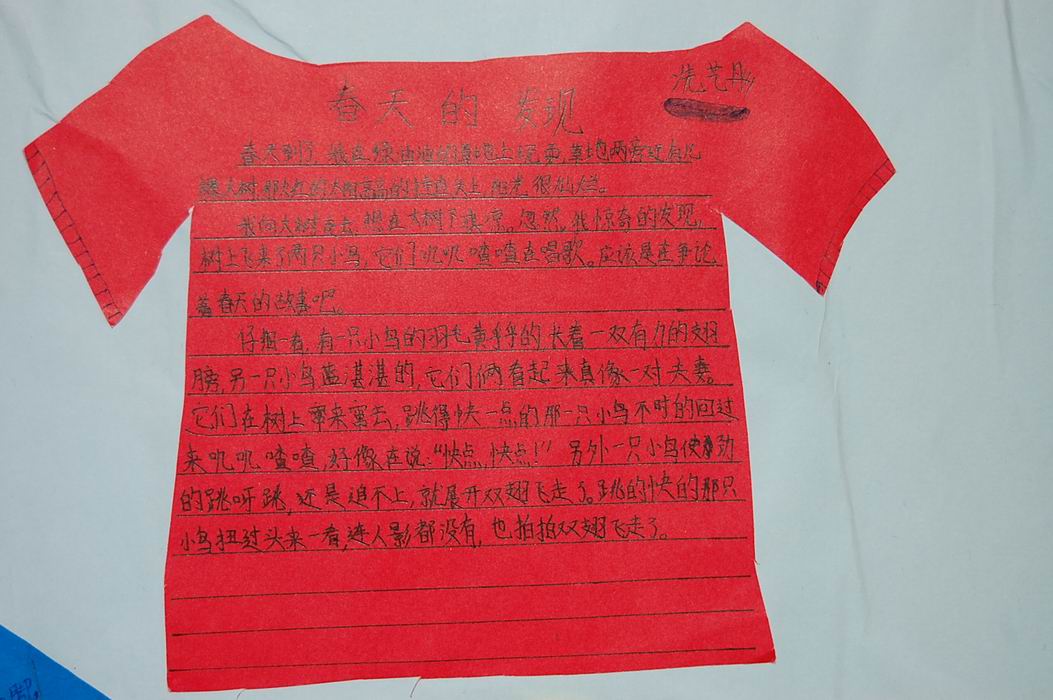 春天的发现
冼艺彤
春天到了,我在绿油油的草地上玩耍,草地两旁还有几
棵大树,那火红的太阳高高的挂在头上,阳光很灿烂。
我向大树走去,想在大树下乘凉。忽然,我惊奇的发现,
树上飞来了两只小鸟,它们叽叽喳喳在唱歌。应该是在争论
着春天的故事吧。
仔细一看,有一只小鸟的羽毛黄乎乎的,长着一双有力的翅
膀,另一只小鸟蓝湛湛的,它们俩看起来真像一对夫妻。
它们在树上窜来窜去,跳得快一点的那一只小鸟不时的回过
来叽叽喳喳,好像在说:“快点,快点!”另外一只小鸟使劲
的跳呀跳,还是追不上,就展开双翅飞走了。跳的快的那只
小鸟扭过头来一看,连人影都没有,也拍拍双翅飞走了。